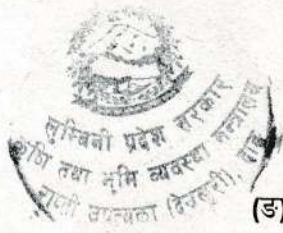 लुम्बिनी प्रदेश सरकार
कृषि तथा भूमि व्यवस्था मन्त्रालय
राप्ती उपत्यका (देउखुरी), दाङ
(ङ)